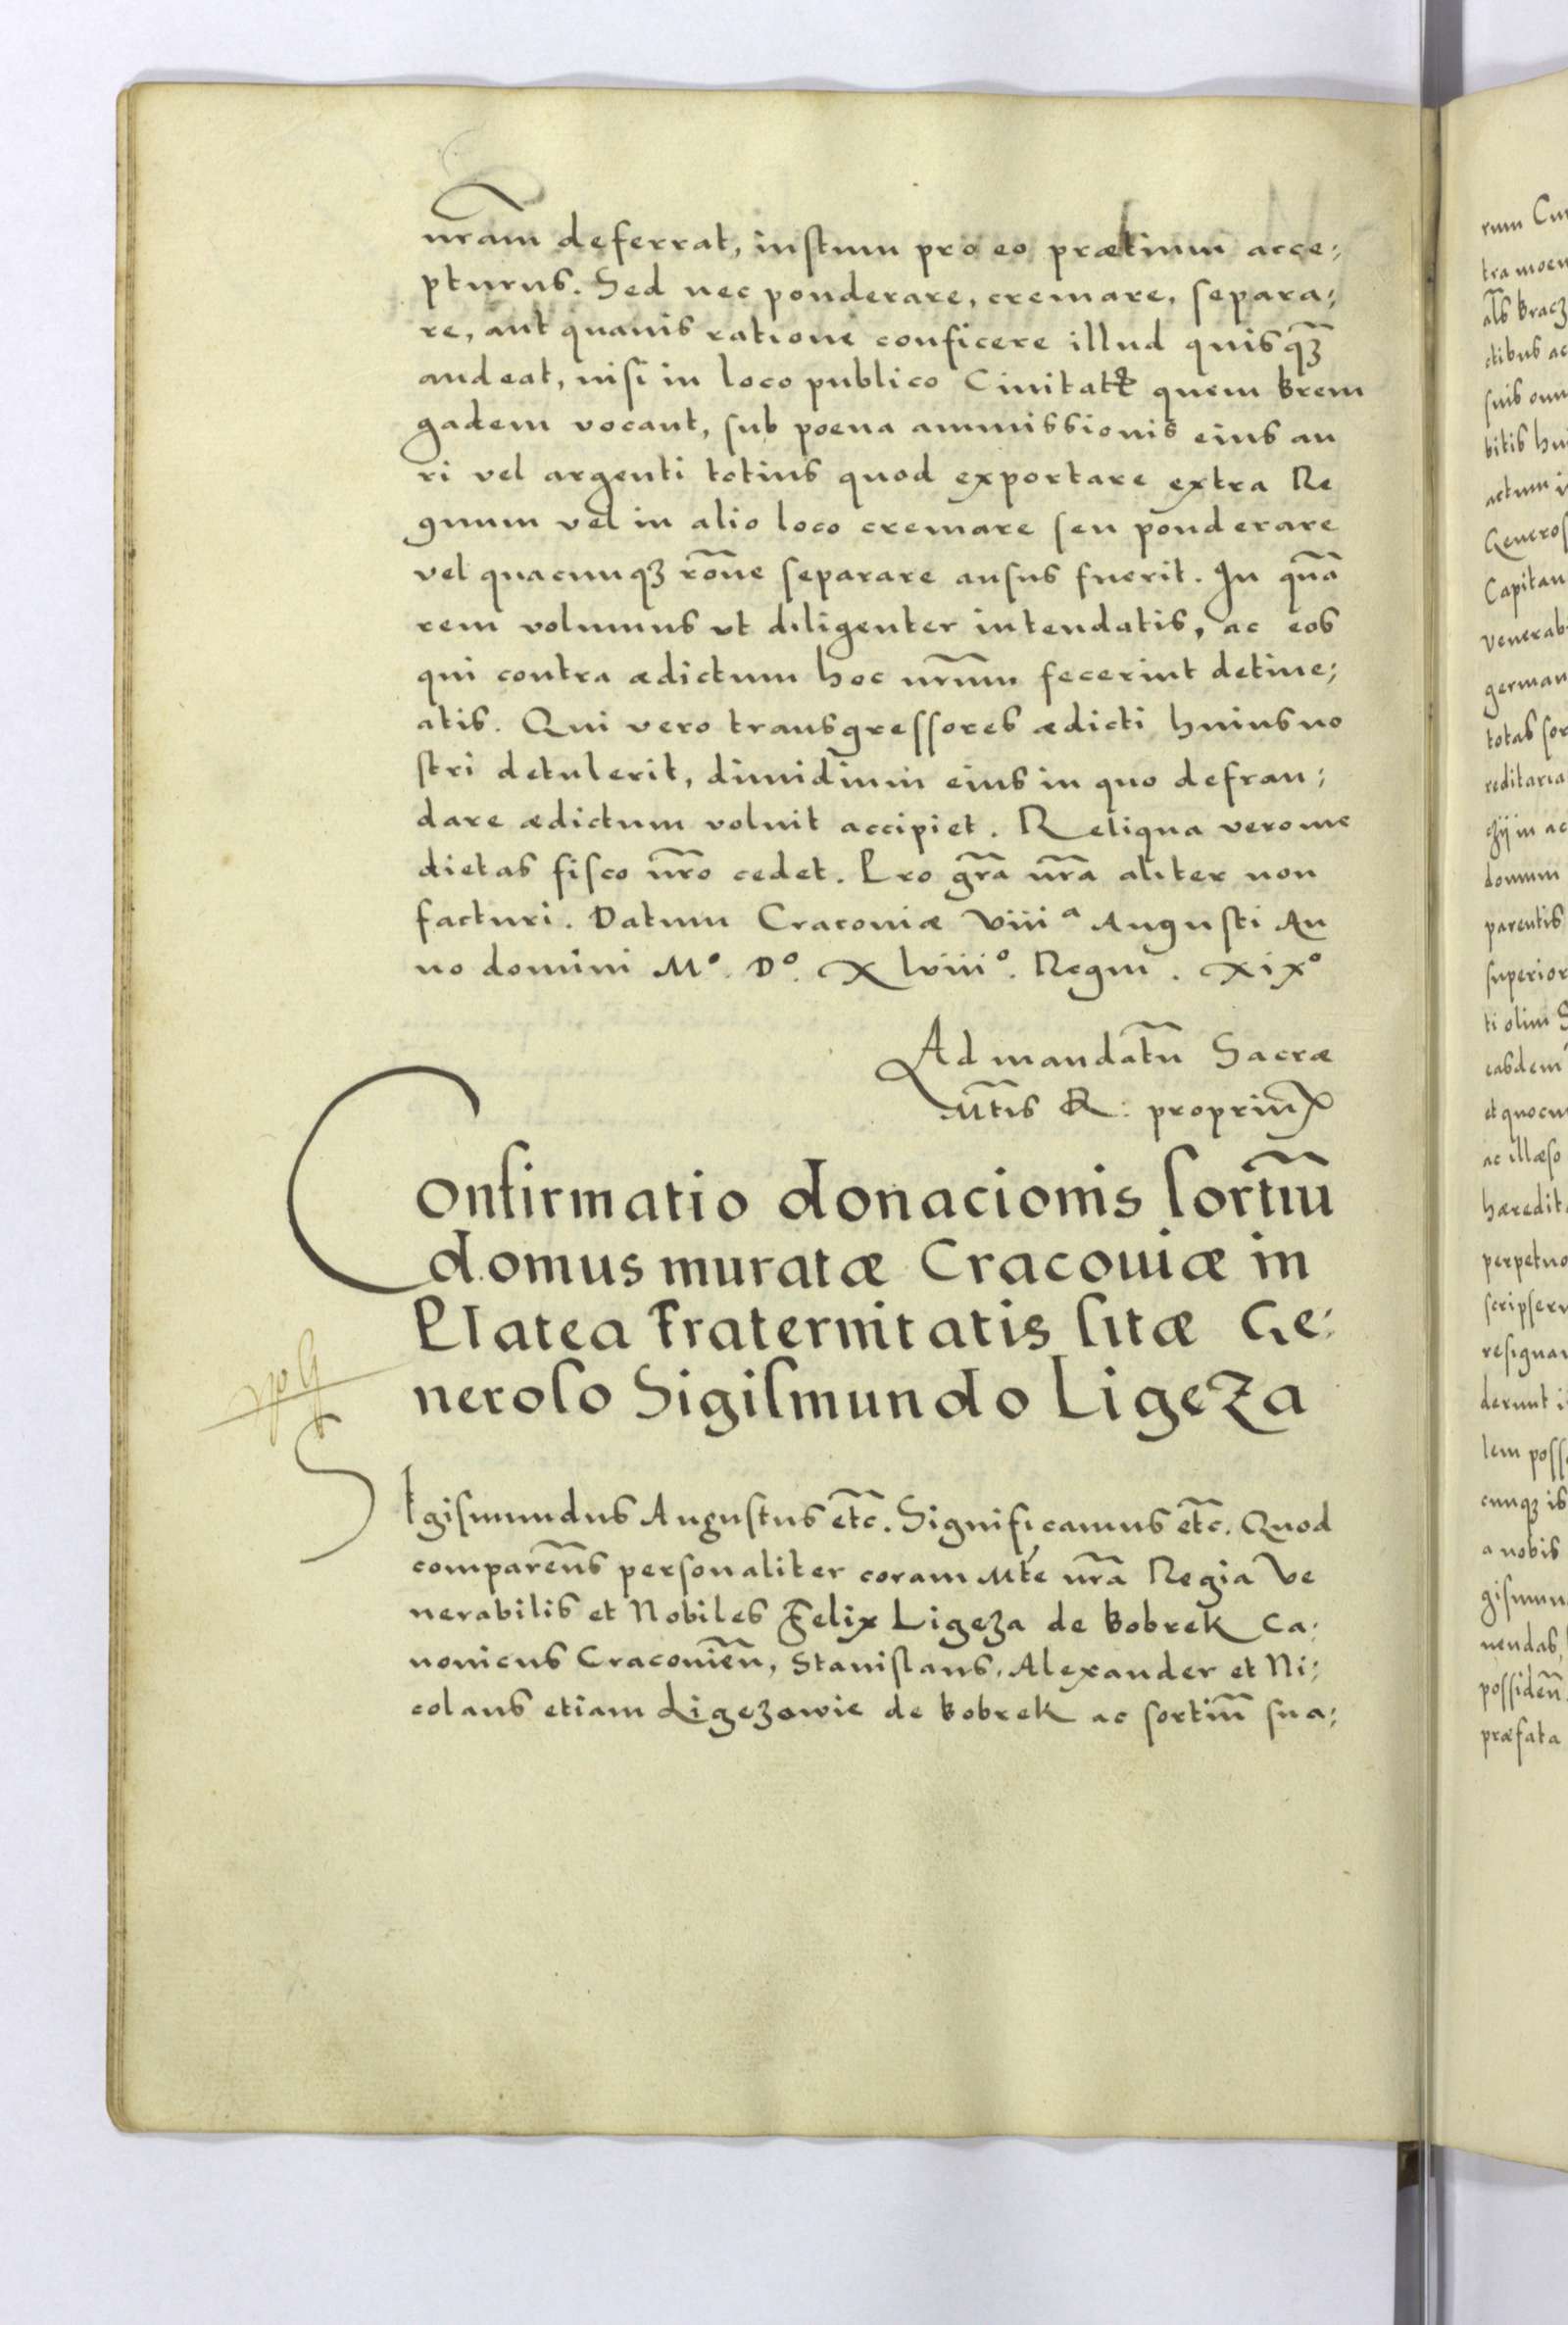 nr̃am deferrat, iustum pro eo prætium acce;
pturus. Sed nec ponderare, cremare, separa;
re, aut quauis ratione conficere illud quisqꝫ
audeat, nisi in loco publico Ciuitatꝭ quem Brem
gadem vocant, sub poena ammissionis eius au
ri vel argenti totius quod exportare extra Re
gnum vel in alio loco cremare seu ponderare
vel quacunqꝫ rõne separare ausus fuerit. In quã
rem volumus vt diligenter intendatis, ac eos
qui contra ædictum hoc nr̃um fecerint detine;
atis. Qui vero transgressores ædicti huius no
stri detulerit, dimidium eius in quo defrau;
dare ædictum voluit accipiet. Reliqua vero me
dietas fisco nr̃o cedet. Pro gr̃a nr̃a aliter non
facturi. Datum Cracouiæ Viiiᵃ Augusti An
no domini Mº. Dº. Xlviiiº. Regni. xixº
Ad mandatũ Sacræ
Mt̃is R: propriũ
Confirmatio donacionis sortiũ
domus muratæ Cracouiæ in
Platea fraternitatis sitæ Ge:
neroso Sigismundo Ligeza
Sigismundus Augustus etc̃. Significamus etc̃. Quod
comparẽns personaliter coram Mt̃e nr̃a Regia Ve
nerabilis et Nobiles Felix Ligeza de Bobrek Ca;
nonicus Cracouieñ, Stanislaus, Alexander et Ni;
colaus etiam Ligezowie de Bobrek ac sortiũ sua;
rum
tra moen
al̃s bracz
ctibus ac
suis om
bitis hui
actum i
Generos
Capitan
Venerab
german
totas sor
reditaria
in ac
domum
parentis
superior
ti olim S
easdem
et quocu
ac illæso
hæredit
perpetuo
scripser
resigna
derunt i
lem poss
cunqꝫ is
a nobis
gismun
nendas
possideñ
præfata